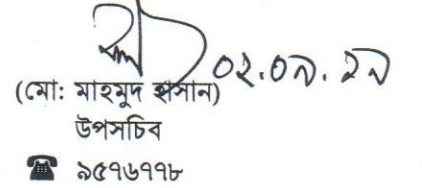 ০২.০৯.১৯
(মো: মাহমুদ হাসান)
উপসচিব
☎ ৯৫৭৬৭৭৮